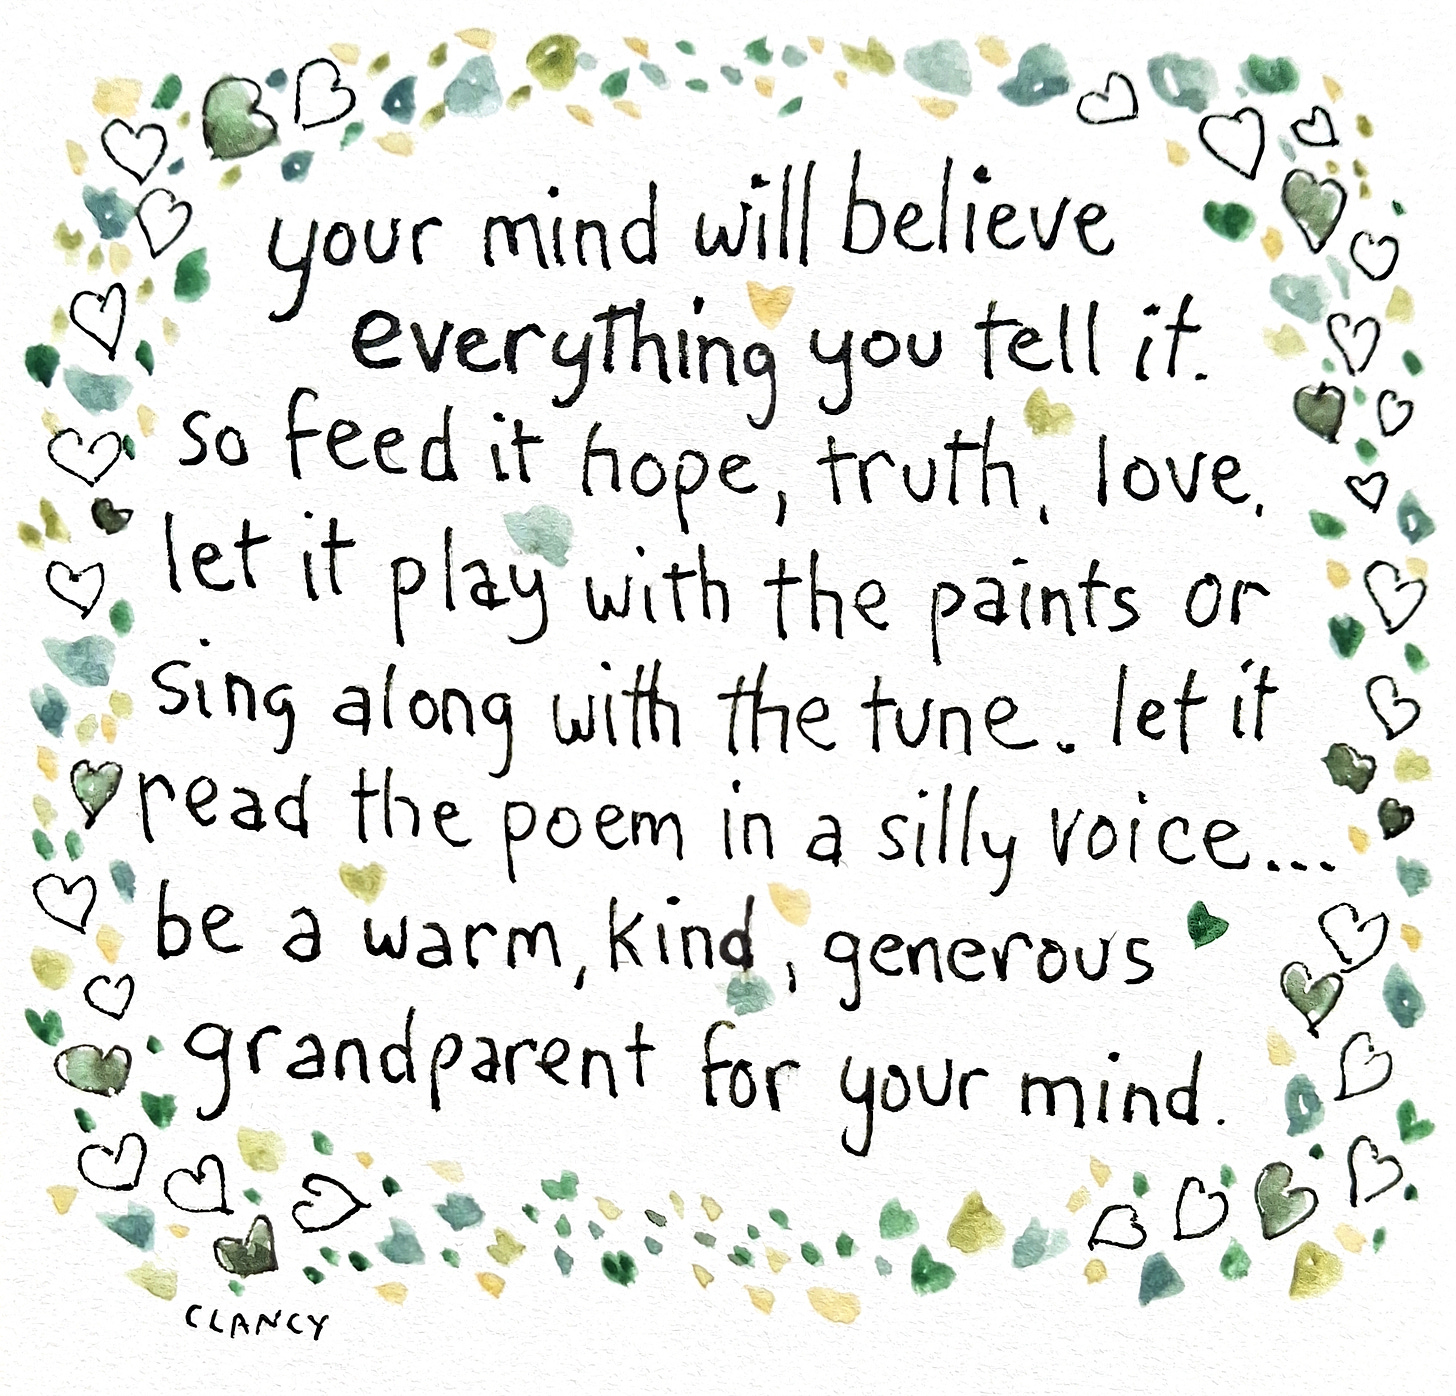 your mind will believe
everything you tell it.
so feed it hope, truth, love.
let it play with the paints or
sing along with the tune. let it
read the poem in a silly voice...
be a warm, kind, generous
grandparent for your mind.
CLANCY